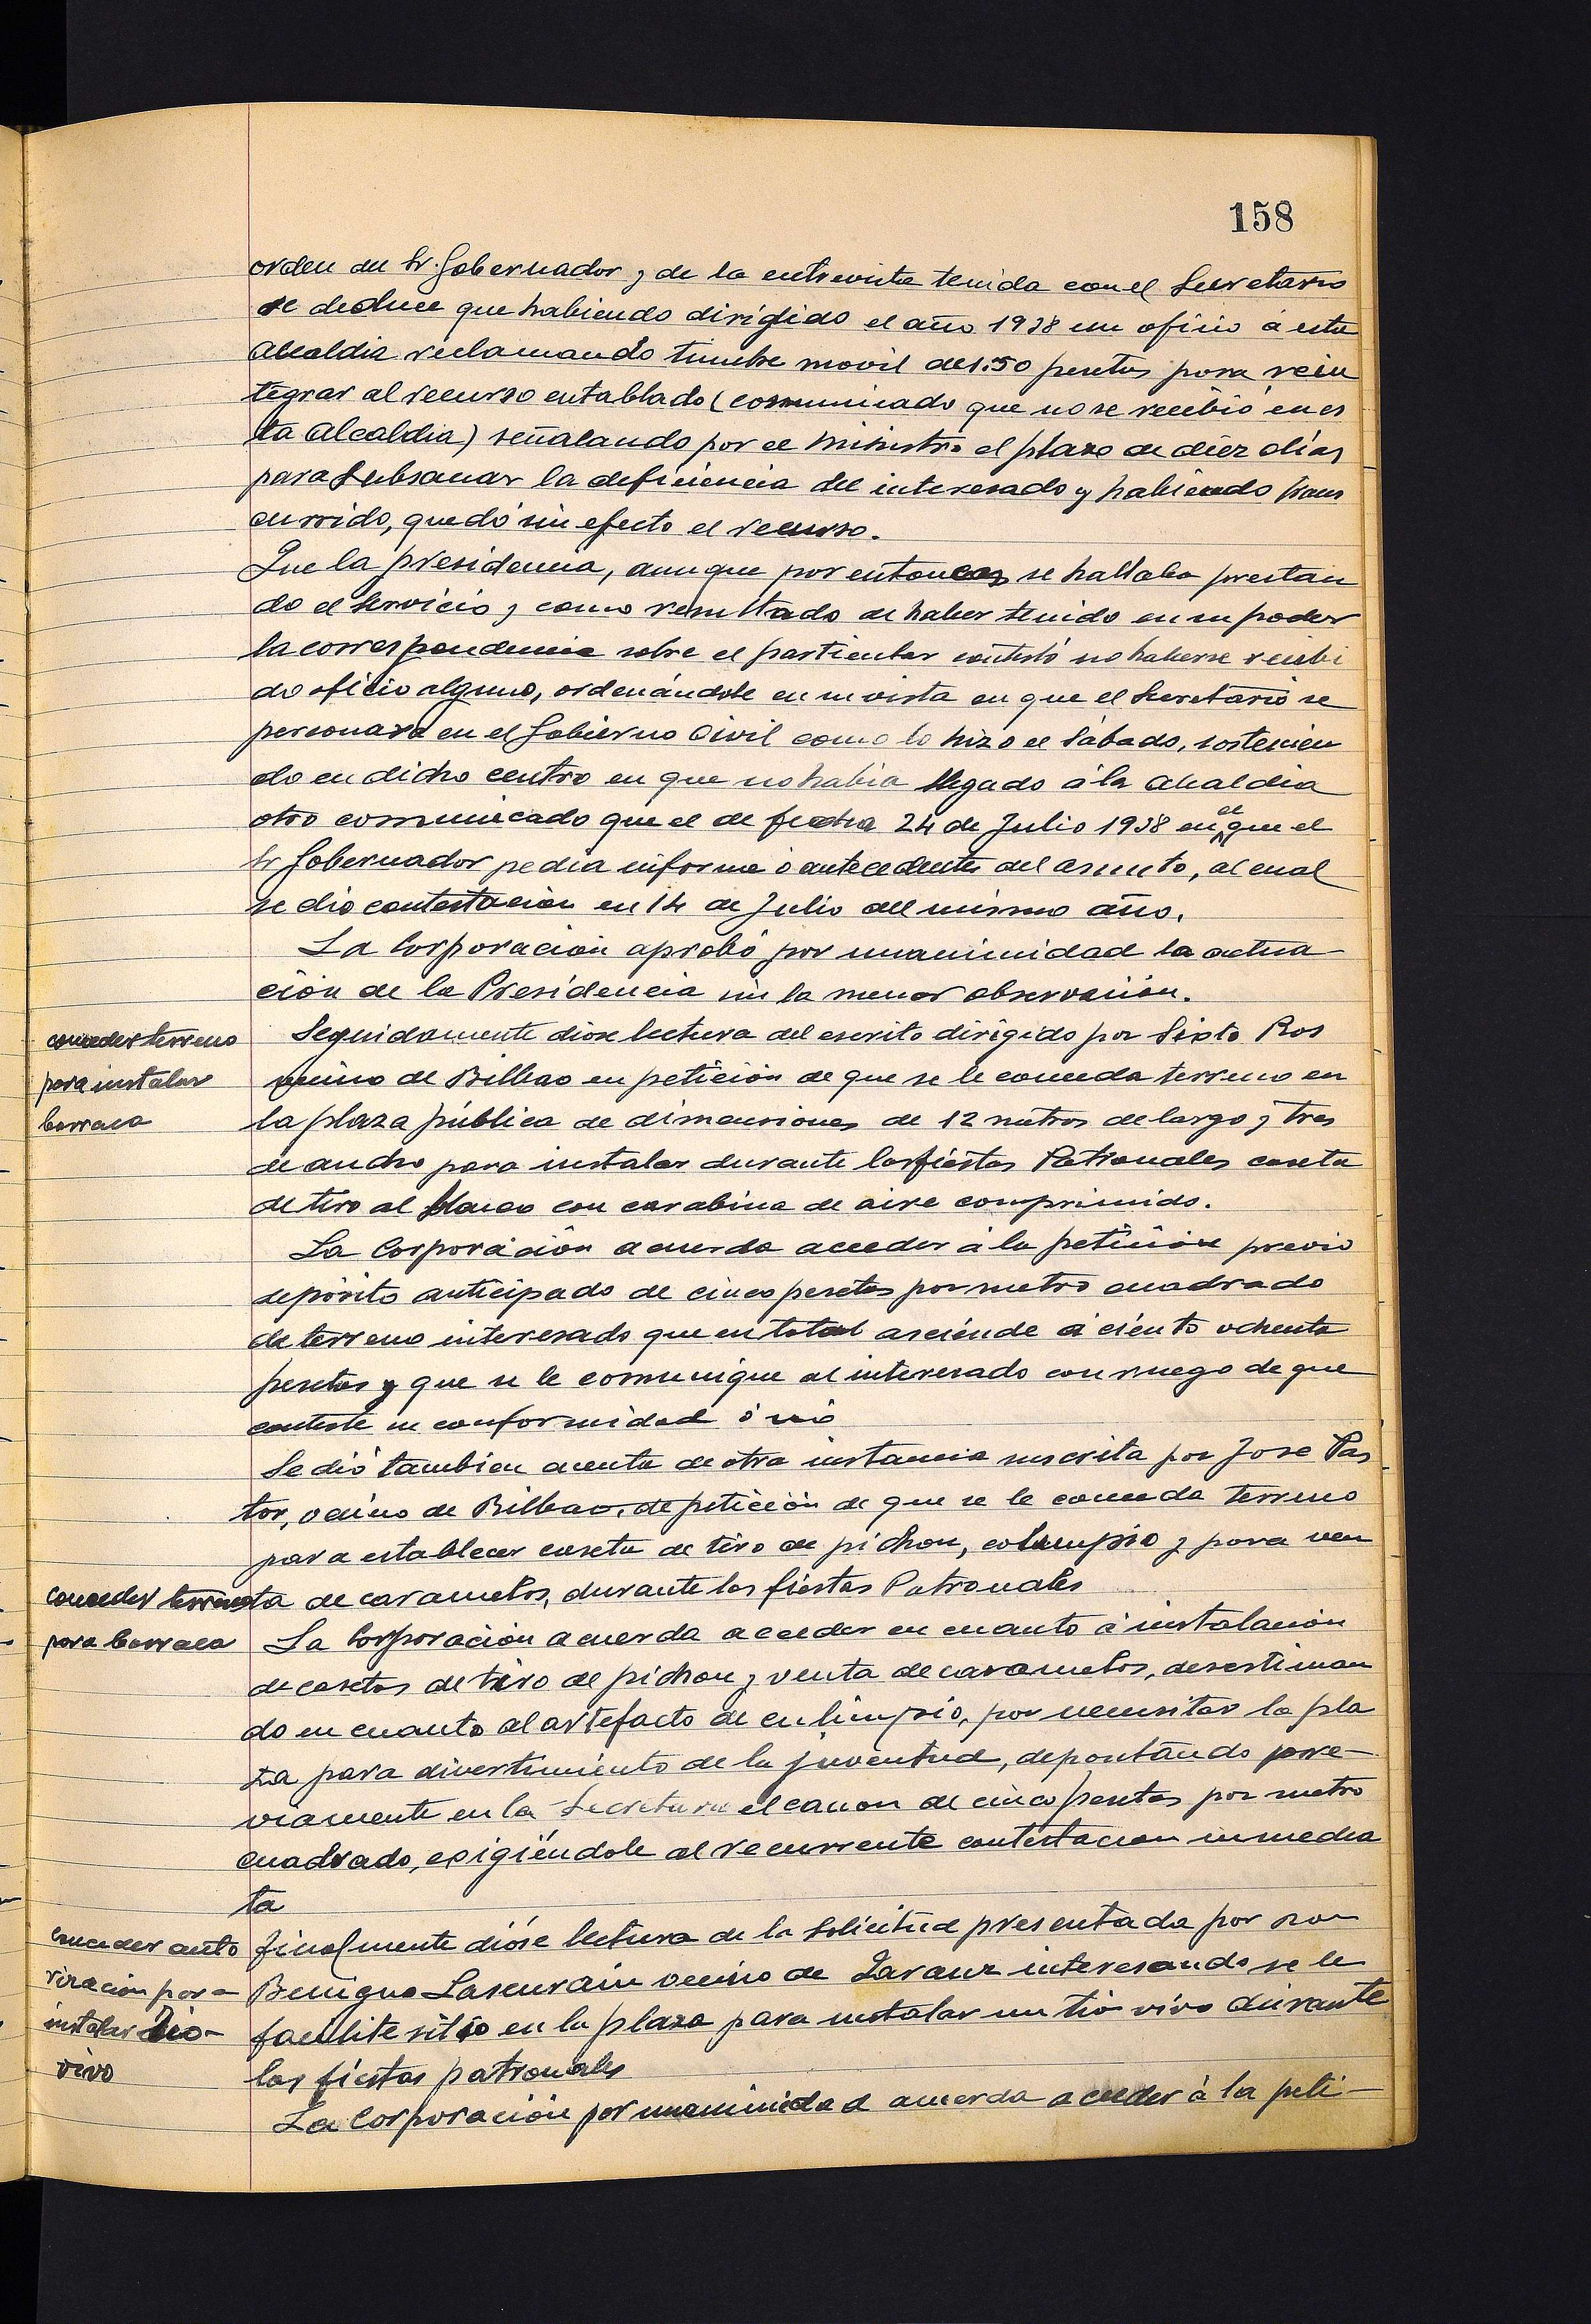 158
orden del Sr. Gobernador y de la entrevista tenida con el Secretario
se deduce que habiendo dirigido el año 1938 un oficio á esta
Alcaldia reclamando timbre movil de 1.50 pesetas para rein
tegrar al recurso entablado (comunicado que no se recibió en es
ta Alcaldia) señalando por el Ministro el plazo de diez dias
para subsanar la deficiencia del interesado y habiendo trans
currido, quedó sin efecto el recurso.
Que la presidencia, aunque por entonces se hallaba prestan
do el servicio y como resultado de haber tenido en su poder
la correspondencia sobre el particular contestó no haberse recibi
do oficio alguno, ordenándole en su vista en que el Secretario se
personara en el Gobierno Civil como lo hizo el Sábado, sostenien
do en dicho centro en que no habia llegado á la Alcaldia
otro comunicado que el de fecha 24 de Julio 1938 en el que el
Sr Gobernador pedia informe ó antecedentes del asunto, al cual
se dio contestación en 14 de Julio del mismo año.
La Corporación aprobó por unanimidad la actua
ción de la Presidencia sin la menor observación.
conceder terreno
para instalar
barraca
Seguidamente diose lectura del escrito dirigido por Sixto Ros
vecino de Bilbao en petición de que se le conceda terreno en
la plaza pública de dimensiones de 12 metros de largo y tres
de ancho para instalar durante las fiestas Patronales caseta
de tiro al blanco con carabina de aire comprimido.
La Corporación acuerda acceder á la petición previo
depósito anticipado de cinco pesetas por metro cuadrado
de terreno interesado que en total asciende á ciento ochenta
pesetas y que se le comunique al interesado con ruego de que
conteste su conformidad ó nó
Se dió tambien cuenta de otra instancia suscrita por Jose Pas
tor, vecino de Bilbao, de petición de que se le conceda terreno
para establecer caseta de tiro de pichon, columpio y para ven
conceder terreno
para barraca
ta de caramelos, durante las fiestas Patronales
La Corporación acuerda acceder en cuanto á instalación
de casetas de tiro de pichon y venta de caramelos, desestiman
do en cuanto al artefacto de culimpio, por necesitar la pla
za para divertimiento de la juventud, depontando pre-
viamente en la Secretaria el canon de cinco pesetas por metro
cuadrado, exigiéndole al recurrente contestacion inmedia
ta
conceder auto
rización para
instalar Tio-
vivo
finalmente dióse lectura de la solicitud presentada por
Benigno Lascurain vecino de Zarauz interesando se le
facilite sitio en la plaza para instalar un tio vivo durante
las fiestas patronales
La Corporación por unanimidad acuerda acceder á la peti-